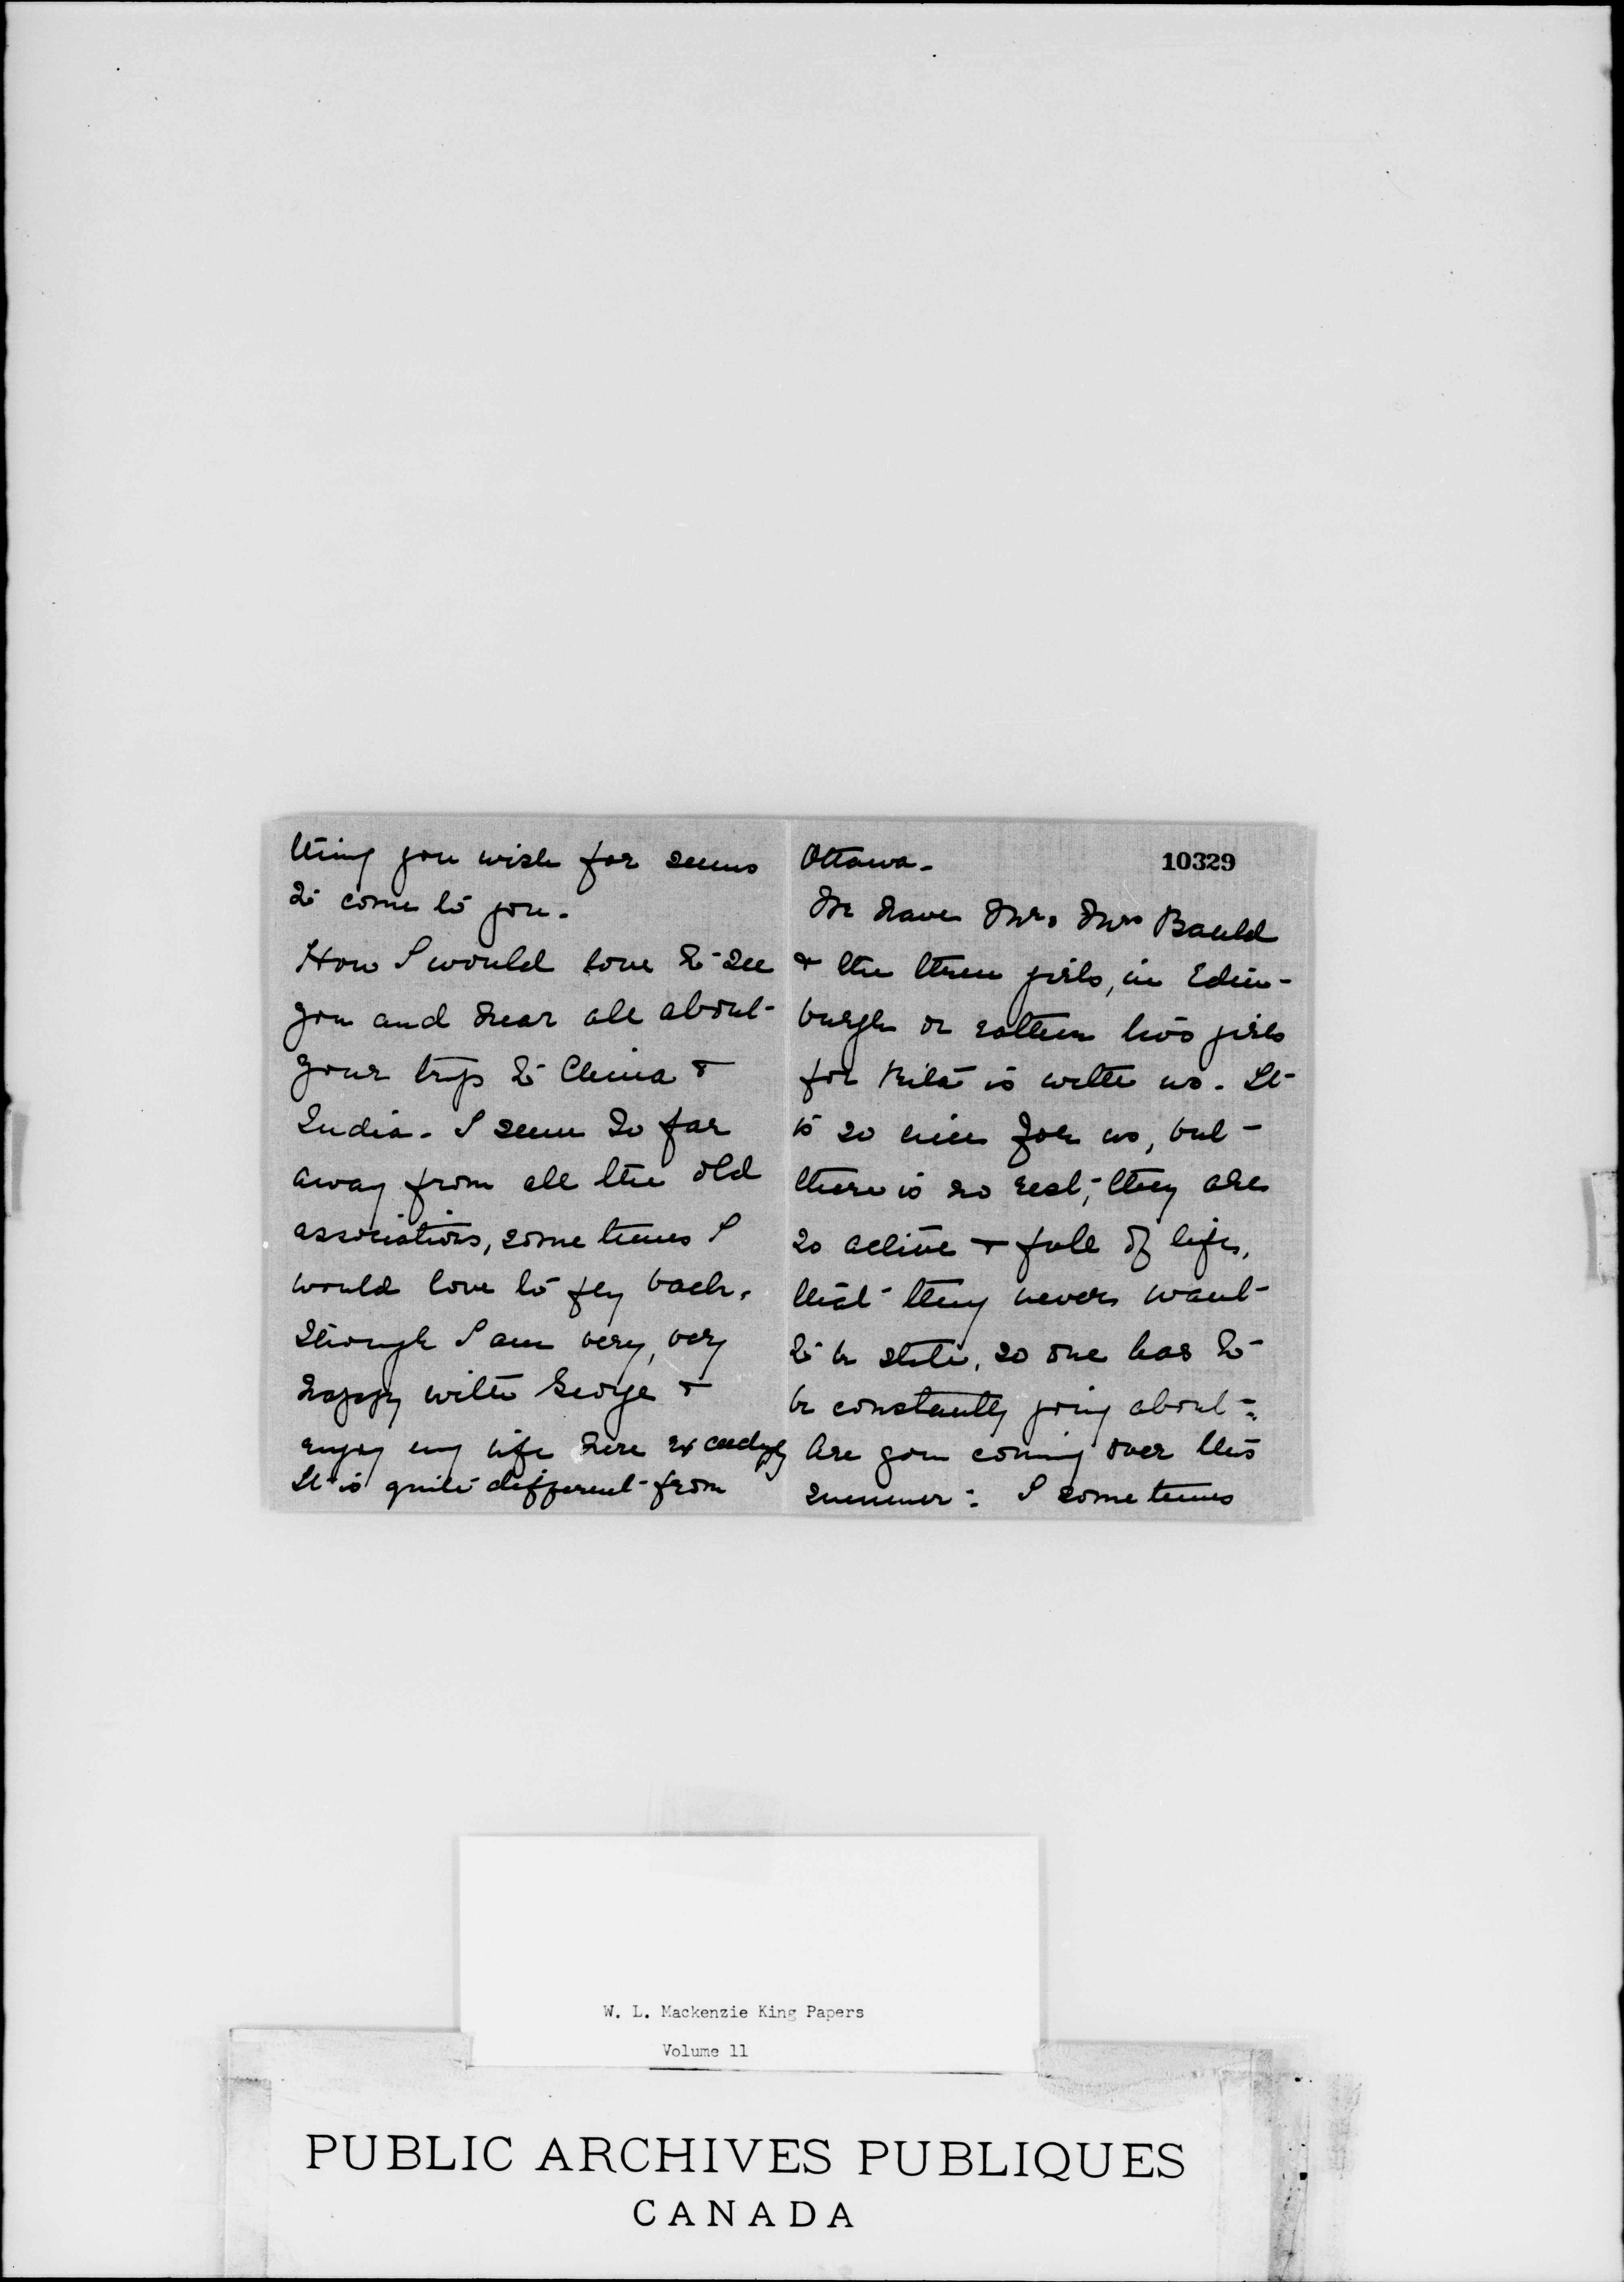 thing you wish for seems
to come to you.
How I would love to see
you and hear all about
your trip to China &
India. I seem so far
away from all the old
associations, sometimes I
would love to fly back,
though I am very, very
happy with George &
enjoy my life here exceedingly
It is quite different from
Ottawa.
10329
We have Mr. & Mrs Bauld
& the three girls, in Edin-
burgh or rather two girls
for Rita is with us. It
is so nice for us, but
there is no rest, they are
so active & full of life,
that they never want
to be still, so one has to
be constantly going about.
Are you coming over this
summer: I sometimes
W. L. Mackenzie King Papers
Volume 11
PUBLIC ARCHIVES PUBLIQUES
CANADA